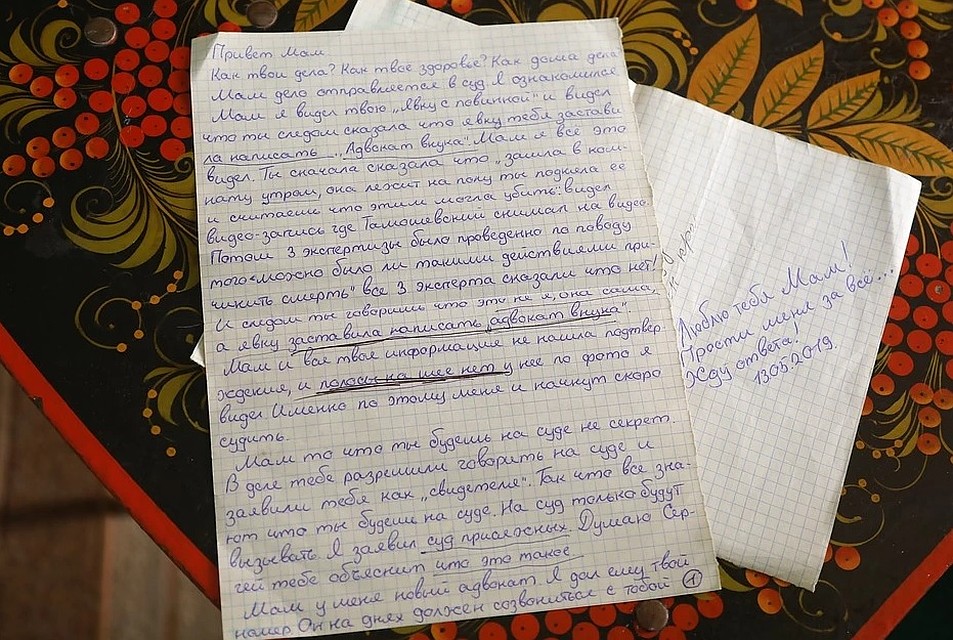 Привет Мам
Как твои дела? Как твое здоровье? Как дома дела
Мам дело отправляется в суд. Я ознакомился
Мам я видел твою „явку с повинной" и видел
что ты следом сказала что явку тебя застави
ла написать „Адвокат внука". Мам я всё это
видел. Ты сначала сказала что „зашла в ком-
нату утром, она лежит на полу ты подняла её
и считаешь что этим могла убить: видел
видео-запись где Тамошевский снимал на видео.
Потом 3 экспертизы было проведенно по поводу
того „можно было ли такими действиями при-
чинить смерть" все 3 эксперта сказали что нет!
И следом ты говоришь что это не я, она сама,
а явку заставила написать „адвокат внука"
Мам и вся твоя информация не нашла подтвер
ждения, и полосы на шее нет у нее по фото я
видел Именно по этому меня и начнут скоро
судить.
Мам то что ты будешь на суде не секрет.
В деле тебе разрешили говорить на суде и
заявили тебя как „свидетеля". Так что все зна-
ют что ты будешь на суде. На суд только будут
вызывать. Я заявил суд присяжных Думаю Сер-
гей тебе объяснит что это такое
Мам у меня новый адвокат. Я дал ему твой
номер. Он на днях должен созвониться с тобой 1
Люблю тебя Мам!
Прости меня за всё...
Жду ответа!
13.05.2019.